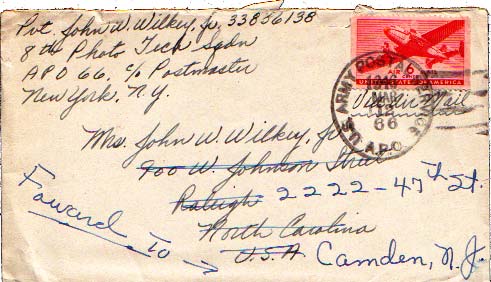 Pvt. John W. Wilkey, Jr, 33836138
8th Photo Tech Sqdn
APO 66, c/o Postmaster
New York, N.Y.
AIR MAIL
UNITED STATES OF AMERICA
U.S. ARMY POSTAL SERVICE
MAR
12
66
A.P.O.
Via Air Mail
Mrs. John W. Wilkey, Jr.
900 W. Johnson Street
Raleigh 2222-47th St.
North Carolina
U.S.A Camden, N.J.
Foward To